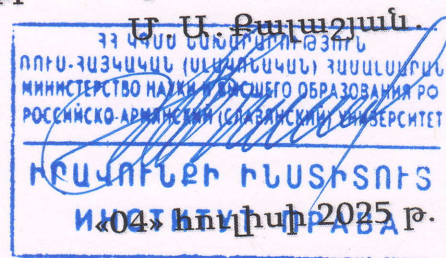 Մ. Ա. Քալաշյան.
ՀՀ ԿԳՄՍ ՆԱԽԱՐԱՐՈՒԹՅՈՒՆ
ՌՈՒՍ-ՀԱՅԿԱԿԱՆ (ՍԼԱՎՈՆԱԿԱՆ) ՀԱՄԱԼՍԱՐԱՆ
МИНИСТЕРСТВО НАУКИ И ВЫСШЕГО ОБРАЗОВАНИЯ РФ
РОССИЙСКО-АРМЯНСКИЙ (СЛАВЯНСКИЙ) УНИВЕРСИТЕТ
ԻՐԱՎՈՒՆՔԻ ԻՆՍՏԻՏՈՒՏ
ИНСТИТУТ ПРАВА
«04» հուլիսի 2025 թ.